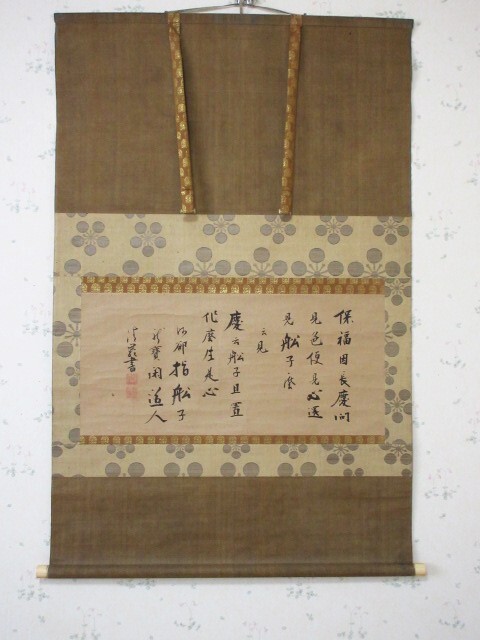 保福因長慶問
見色便見心還
見船子麼
云見
慶云船子且置
作麼生是心
福却指船子
閑道人
書